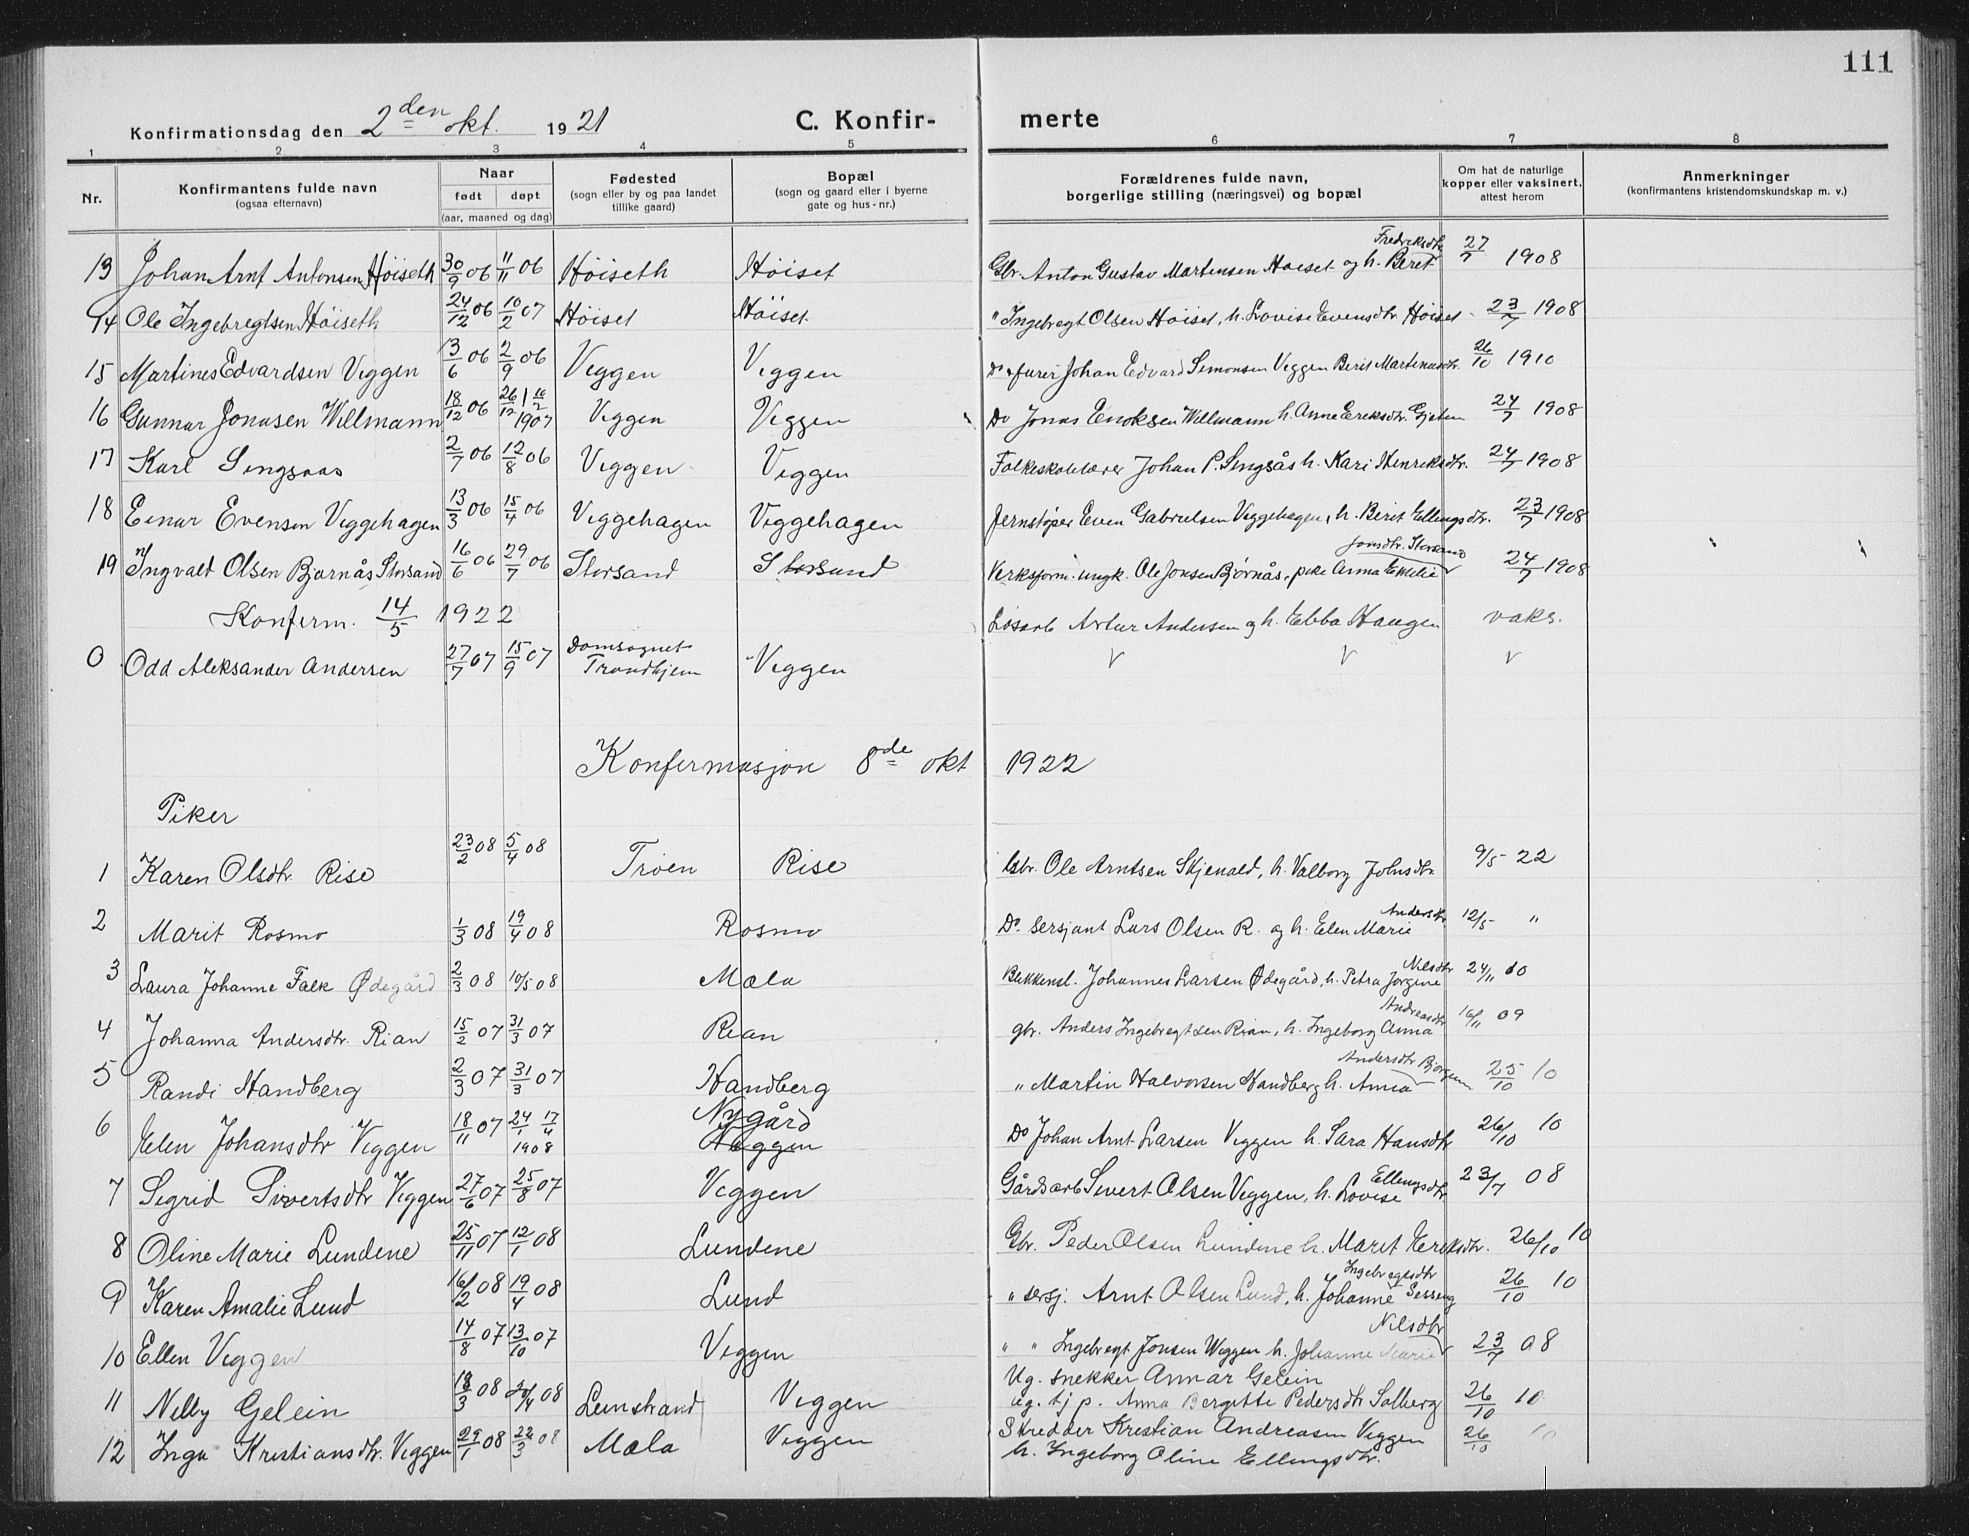 111
Konfirmationsdag den 2den okt. 1921 C. Konfir- merte
1 2 3 4 5 6 7 8
Nr. Konfirmantens fulde navn (ogsaa efternavn) Naar født døpt (aar, maaned og dag) Fødested (sogn eller by og paa landet tillike gaard) Bopæl (sogn og gaard eller i byerne gate og hus-nr.) Forældrenes fulde navn, borgerlige stilling (næringsvei) og bopæl Om hat de naturlige kopper eller vaksinert, attest herom Anmerkninger (konfirmantens kristendomskundskap m. v.)
13 Johan Arnt Antonsen Höiseth 30/9 06 11/11 06 Höiseth Höiset Gbr. Anton Gustav Martinsen Höiset og h. Beret Fredriksdtr 27/7 1908
14 Ole Ingebregtsen Höiseth 24/12 06 10/2 07 Höiset Höiset " Ingebregt Olsen Höiset, h. Lovise Evensdtr. Höiset 23/7 1908
15 Martines Edvardsen Viggen 13/6 06 2/9 06 Viggen Viggen Do furer Johan Edvard Simonsen Viggen Berit Martinusdtr. 26/10 1910
16 Gunnar Jonasen Willmann 18/12 06 26/12 1907 Viggen Viggen Do Jonas Enoksen Willmann h. Anne Eriksdtr. Gjeten 24/7 1908
17 Karl Singsaas 2/7 06 12/8 06 Viggen Viggen Folkeskolelærer Johan P. Singsås h. Kari Henriksdtr. 24/7 1908
18 Einar Evensen Viggehagen 13/3 06 15/4 06 Viggehagen Viggehagen Jernstøper Even Gabrielsen Viggehagen, h. Berit Ellingsdtr. 23/7 1908
19 Ingvalt Olsen Bjørnås Storsand 16/6 06 29/7 06 Storsand Storsand Verksform. ungk. Ole Jonsen Bjørnås, pike Anna Emilie Jonsdtr. Storsand 24/7 1908
Konferm. 14/5 1922 Løsarb Artur Andersen og h. Ebba Haugen vaks.
0 Odd Aleksander Andersen 27/7 07 15/9 07 Domsognet Trondhjem Viggen V V V
Konfirmasjon 8de okt 1922
Piker
1 Karen Olsdtr. Rise 23/2 08 5/4 08 Trøen Rise Gbr. Ole Arntsen Skjenald, h. Valborg Johnsdtr 9/5 22
2 Marit Rosmo 1/3 08 19/4 08 Rosmo Do. Sersjant Lars Olsen R. og h. Elen Marie Andersdtr 12/5 "
3 Laura Johanne Falk Ødegård 2/3 08 10/5 08 Mæla Blikkensl. Johannes Larsen Ødegård, h. Petra Jørgine Nilsdtr 24/11 10
4 Johanna Andersdtr. Rian 15/2 07 31/3 07 Rian gbr. Anders Ingebregtsen Rian, h. Ingeborg Anna Andreasdtr 16/11 09
5 Randi Handberg 2/3 07 31/3 07 Handberg " Martin Halvorsen Handberg h. Anna Andersdtr Bjørgum 25/10 10
6 Elen Johansdtr Viggen 18/11 07 24/1 17/4 1908 Nygård Viggen Do Johan Arnt Larsen Viggen h. Sara Hansdtr 26/10 10
7 Sigrid Sivertsdtr Viggen 27/6 07 25/8 07 Viggen Gårdsarb Sivert Olsen Viggen, h. Lovise Ellingsdtr. 23/7 08
8 Oline Marie Lundene 25/11 07 12/1 08 Lundene Gbr. Peder Olsen Lundene h. Marit Eriksdtr. 26/10 10
9 Karen Amalie Lund 16/2 08 19/4 08 Lund " sersj. Arnt Olsen Lund, h. Johanne Ingebregtsdtr Sesseng 26/10 10
10 Ellen Viggen 14/8 07 13/10 07 Viggen " " Ingebregt Jonsen Wiggen h. Johanne Marie Nilsdtr 23/7 08
11 Nelly Gelein 18/3 08 20/4 08 Leinstrand Viggen Ug. snekker Annar Gelein
ug. tj p. Anna Bergitte Pedersdtr Solberg 26/10 10
12 Inga Kristiansdtr. Viggen 29/1 08 22/3 08 Mæla Viggen Skredder Kristian Andreasen Viggen 26/10 10
h. Ingeborg Oline Ellingsdtr.